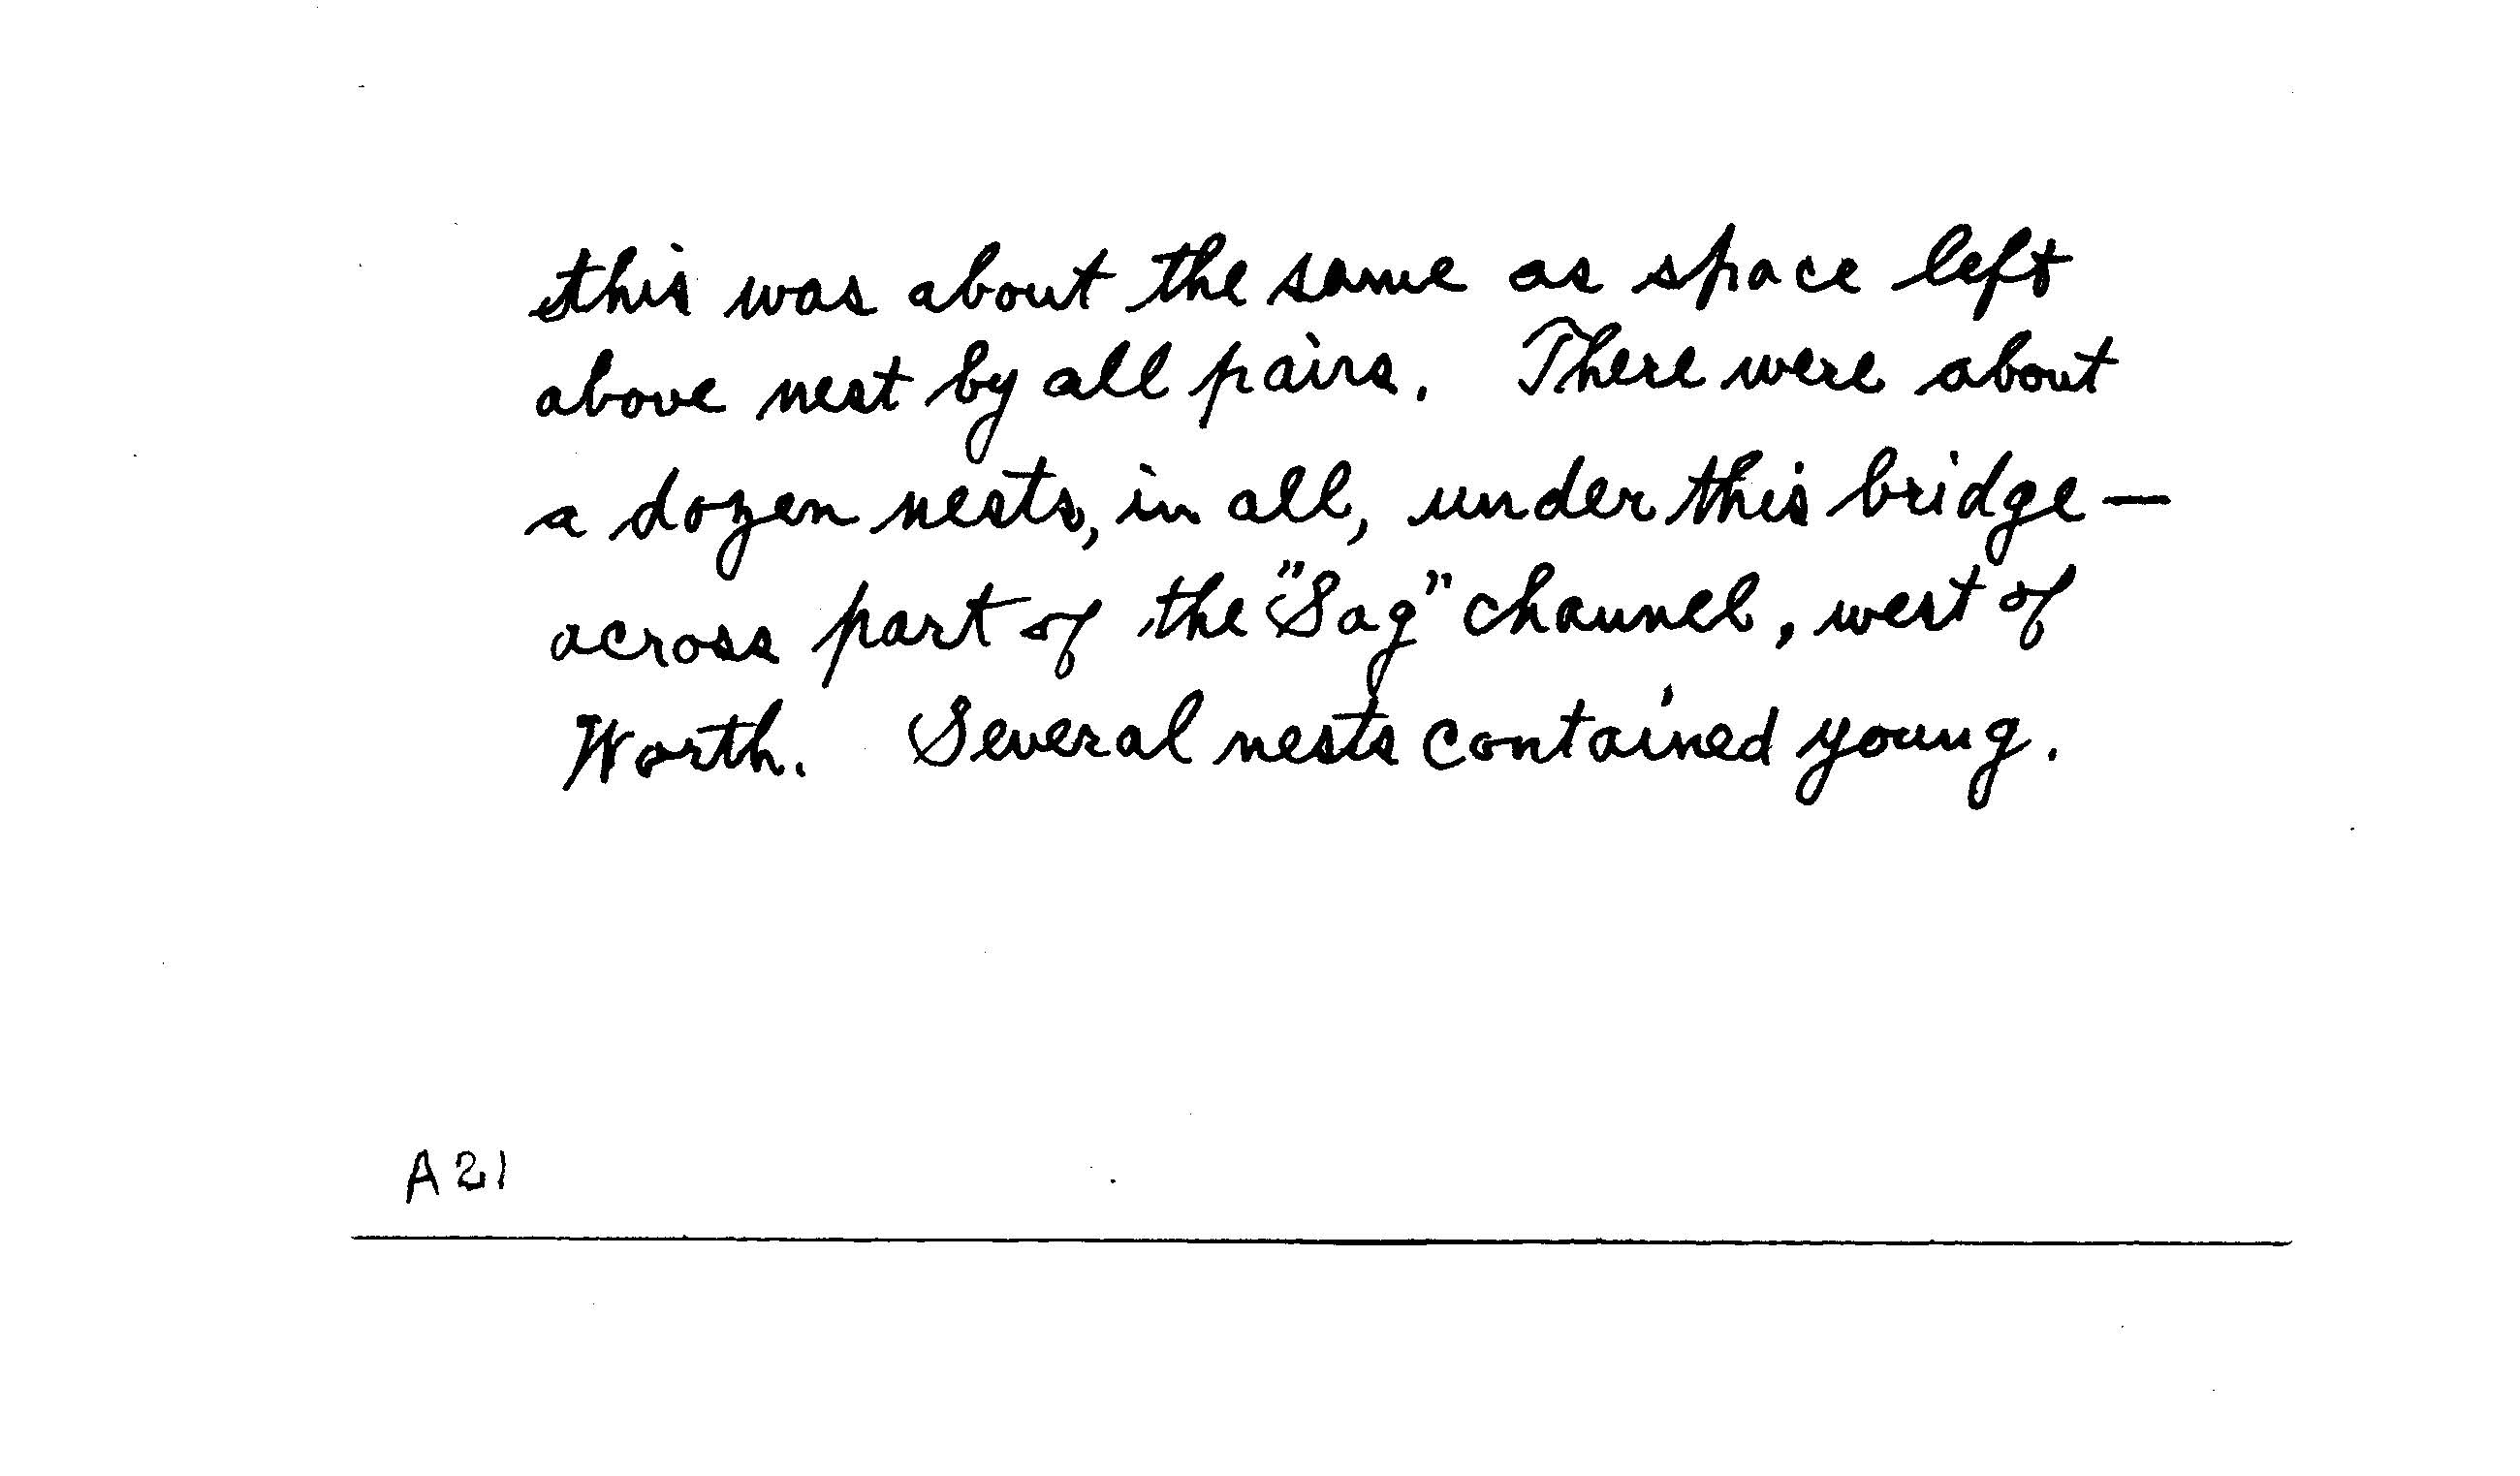 this was about the same as space left
above nest by all pairs. There were about
a dozen nests, in all, under this bridge —
across part of the "Sag" channel, west of
Worth. Several nests contained young.
A21